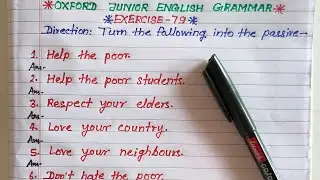 *OXFORD JUNIOR ENGLISH GRAMMAR*
*EXERCISE-79*
Direction: Turn the following into the passive-
1. Help the poor.
Ans-
2. Help the poor students.
Ans-
3. Respect your elders.
Ans-
4. Love your country.
Ans-
5. Love your neighbours.
Ans-
6. Don't hate the poor.